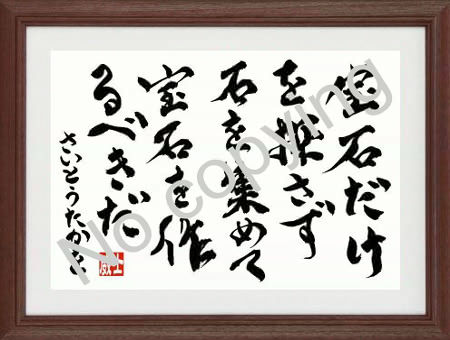 宝石だけ
を探さず
石を集めて
宝石を作
るべきだ
さいとうたかを
No copying